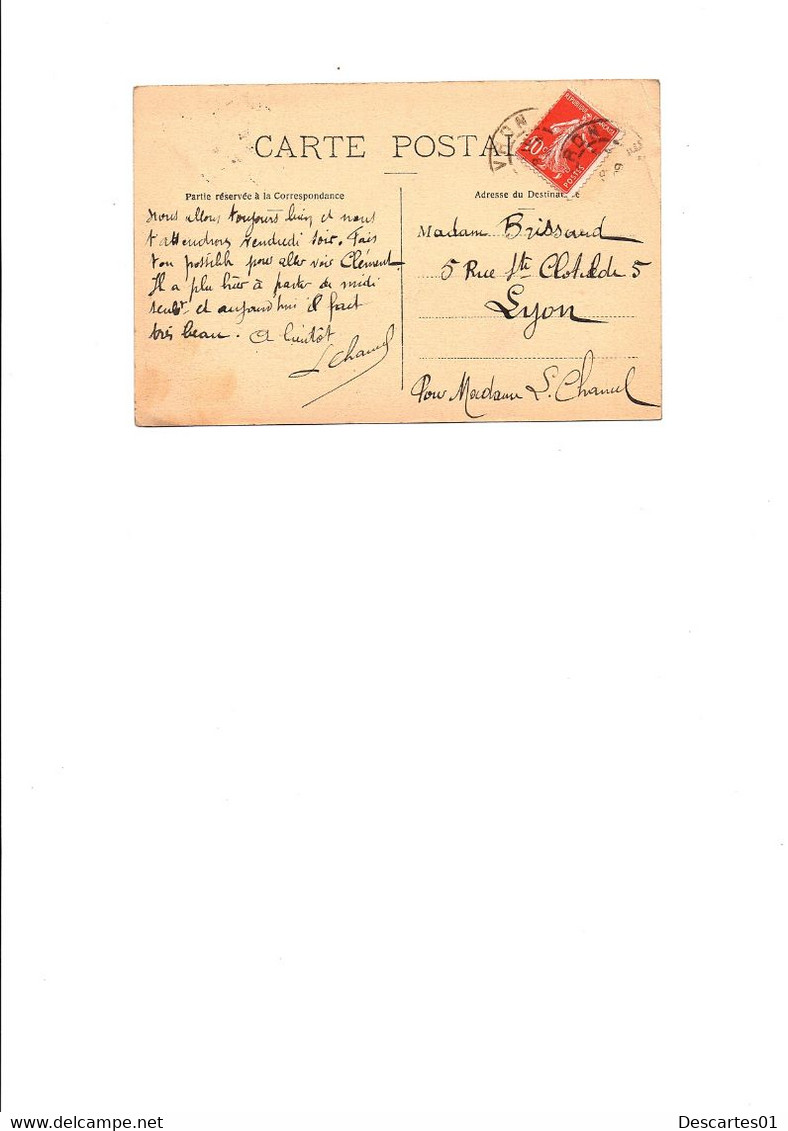 CARTE POSTAL
Partie réservée à la Correspondance
Nous allons toujours bien et nous
t'attendrons vendredi soir. Fais
ton possible pour aller voir Clément.
Il a plu hier à partir de midi
seult et aujourd'hui il fait
très beau. A bientôt
L Chanel
REPUBLIQUE FRANÇAISE
10c
POSTES
VRON
Adresse du Destinataire
Madame Brissaud
5 Rue Ste Clotilde 5
Lyon
Pour Madame L. Chanel
Descartes01